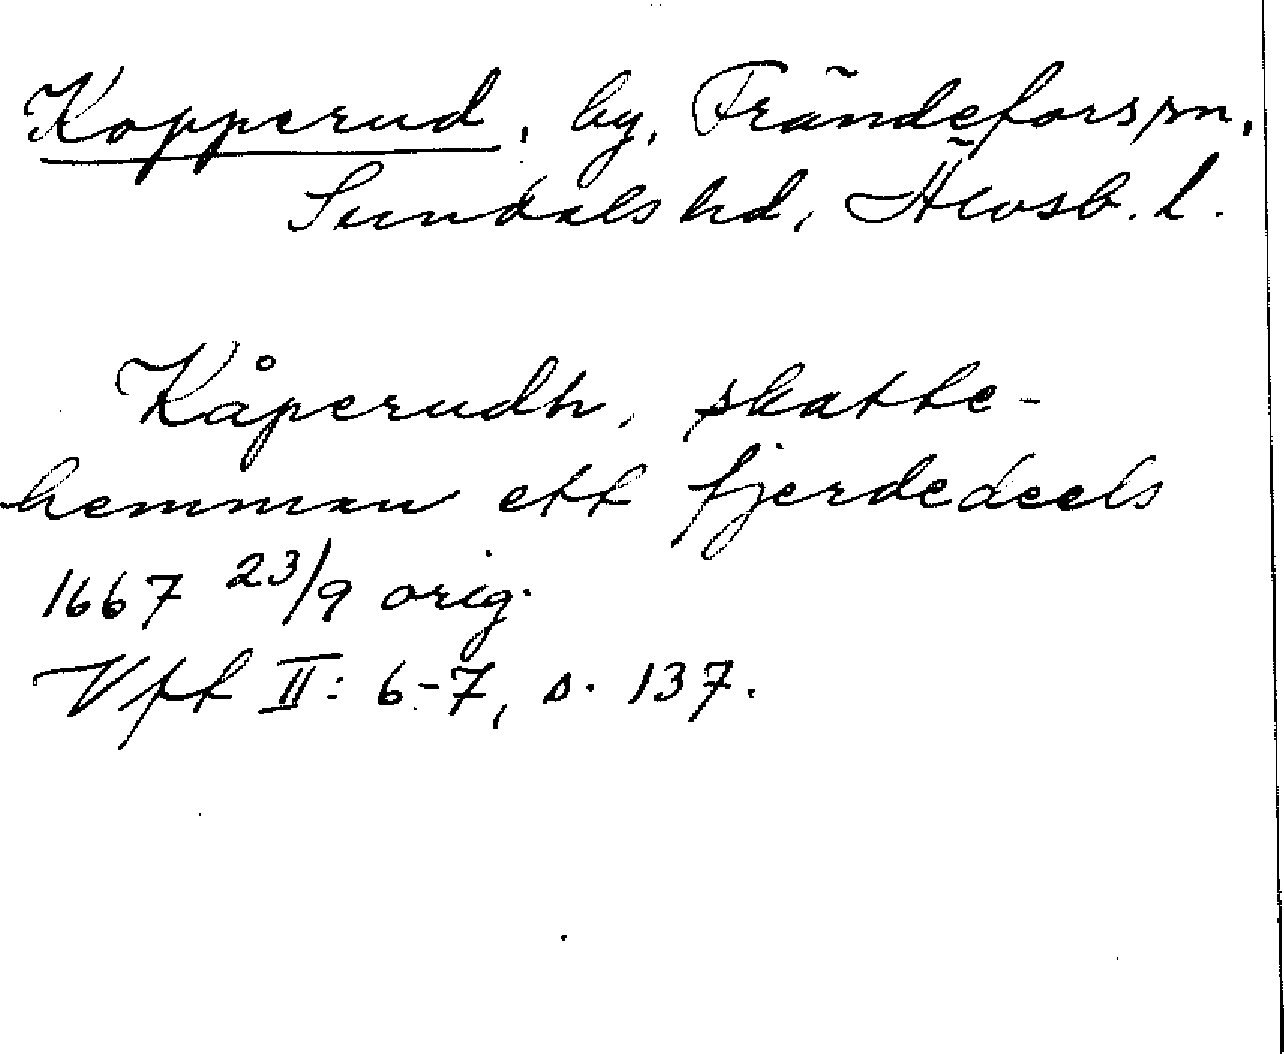 Kopperud, by, Frändefors sn,
Sundals hd, Älvsb. l.
Kåperudh, skatte-
hemman ett fjerdedeels
1667 23/9 orig.
Vpf II: 6-7, s. 137.